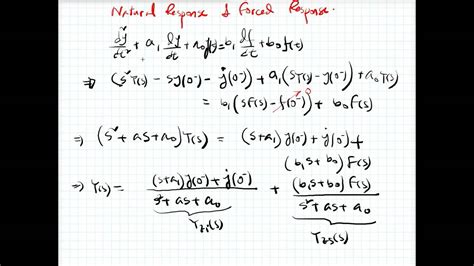 Natural Response & Forced Response.
d²y/dt² + a₁ dy/dt + a₀y(t) = b₁ df/dt + b₀f(t)
⇒ (s²Y(s) - sy(0⁻) - ẏ(0⁻)) + a₁(sY(s) - y(0⁻)) + a₀Y(s)
= b₁(sF(s) - f(0⁻)) + b₀F(s)
⇒ (s² + as + a₀)Y(s) = (s+a₁)y(0⁻) + ẏ(0⁻) +
(b₁s + b₀)F(s)
⇒ Y(s) = (s+a₁)y(0⁻) + ẏ(0⁻) / s² + as + a₀ + (b₁s+b₀)F(s) / s² + as + a₀
Yzi(s) Yzs(s)